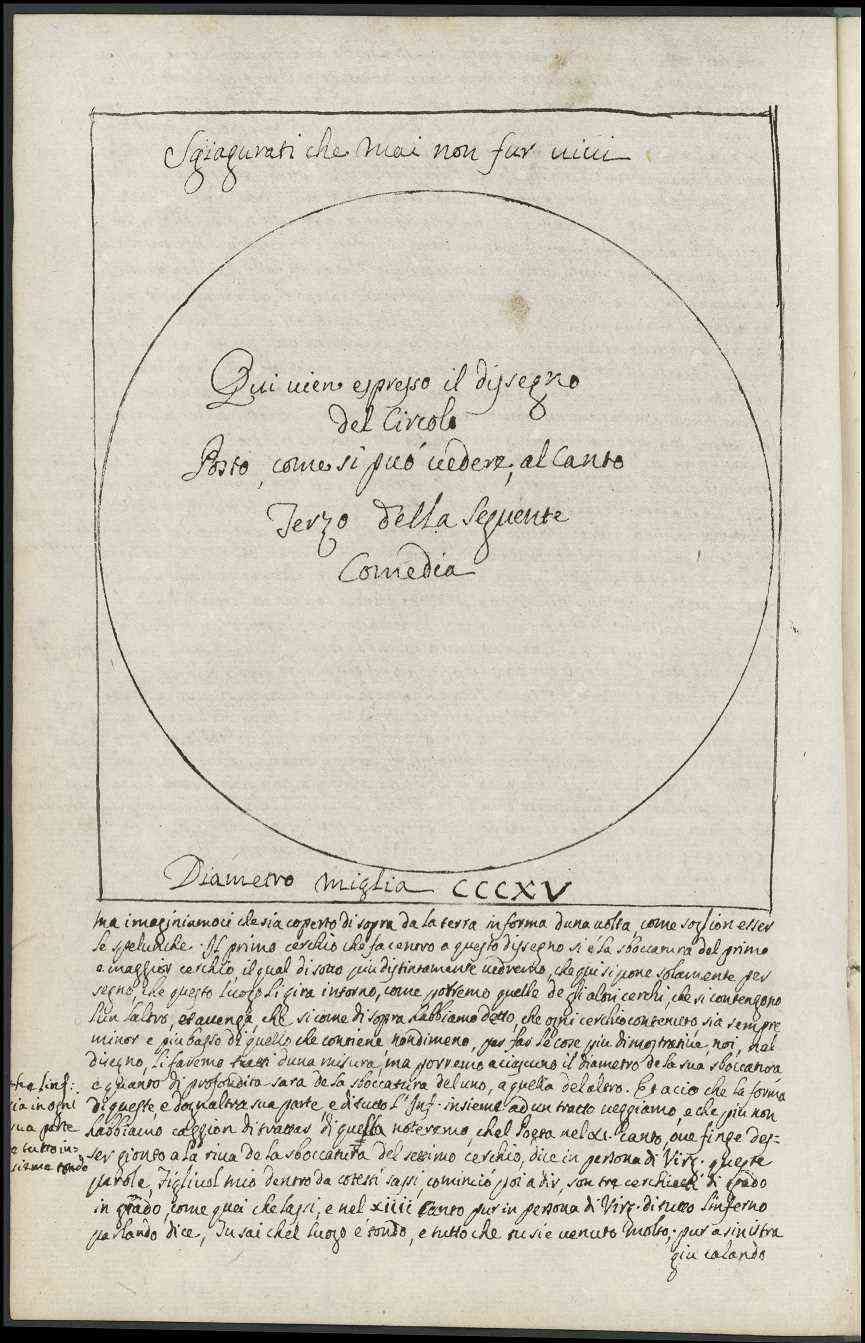 Sgiagurati che mai non fur uiui
Qui uien espresso il dissegno
del Circolo
Posto, come si può uedere, al Canto
Terzo della seguente
Comedia
Diametro miglia CCCXV
ma imaginiamoci che sia coperto di sopra da la terra in forma duna uolta come soglion esser
le spelunche. Il primo cerchio che fa centro a questo dissegno si è la sboccatura del primo
e maggior cerchio, il qual di sotto piu distintamente uedremo, che qui si pone solamente per
segno, che questo luogo li gira intorno, come porremo quelle de gli altri cerchi, che si contengono
lun laltro, et auenga, che si come di sopra habbiamo detto, che ogni cerchio contenuto sia sempre
minor e piu basso di quello che contiene nondimeno, per far le cose piu dimostratiue, noi, nel
disegno, li faremo tutti duna misura, ma porremo a ciascuno il diametro de la sua sboccatura
e quanto di profondita sara da la sboccatura del uno, a quella del altro. Et acio che la forma
di queste e dognaltra sua parte e di tutto l'Inf. insieme ad un tratto ueggiamo, e che piu non
habbiamo caggion di trattar di quella noteremo, chel Poeta nel xi. canto, oue finge des-
ser gionto a la riua de la sboccatura del settimo cerchio, dice in persona di Virg. queste
parole, Figliuol mio dentro da cotesti sassi, cominciò poi a dir, son tre cerchietti di grado
in grado, come quei che lassi, e nel xiiii canto pur in persona di Virg. di tutto linferno
parlando dice, Tu sai chel luogo è tondo, e tutto che tu sie uenuto molto, pur a sinistra
giu calando
cha linf:
sia in ogni
sua parte
e tutto in-
sieme tondo